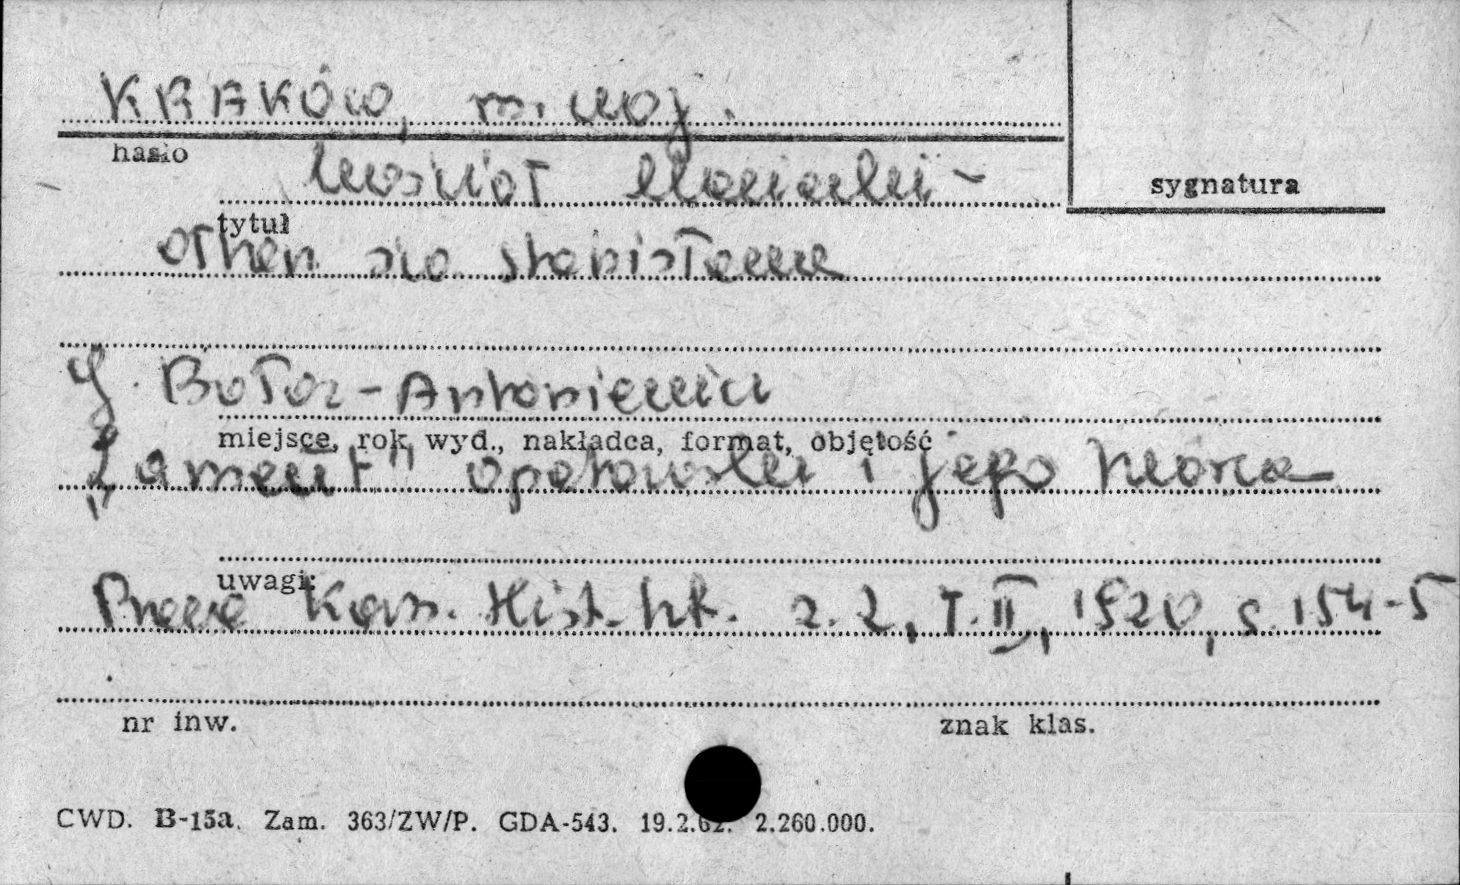 KRAKÓW, m. woj.
hasło
Kościół Mariacki -
sygnatura
tytuł
ołtarz św. Stanisława
J. Bołoz-Antoniewicz
miejsce, rok wyd., nakładca, format, objętość
„Lament" opatowski i jego twórca
uwagi:
Prace Kom. Hist. Szt. z. 2, T. II, 1920, s. 154-5
nr inw.
znak klas.
CWD. B-15a. Zam. 363/ZW/P. GDA-543. 19.2.62. 2.260.000.